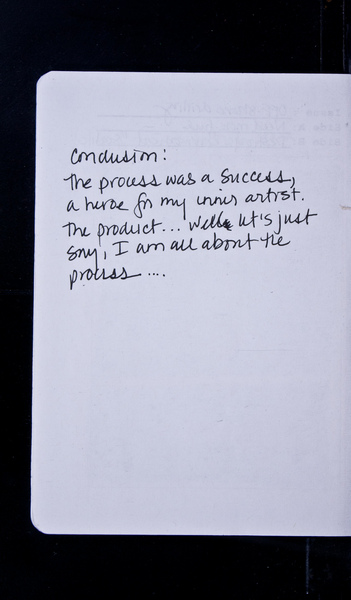 Conclusion:
The process was a success,
a heroe for my inner artist.
The product... Well let's just
say, I am all about the
process ....